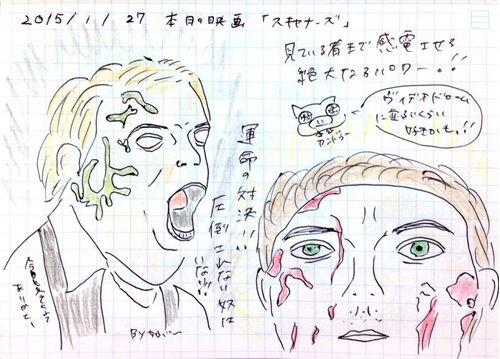 2015/11/27 本日の映画「スキャナーズ」
見ている者まで感電させる
絶大なるパワー・!!
ヴィデオドローム
に並ぶくらい
好きかも。!!
運命の対決!!
圧倒されない奴は
いない!!
ありがとー
By